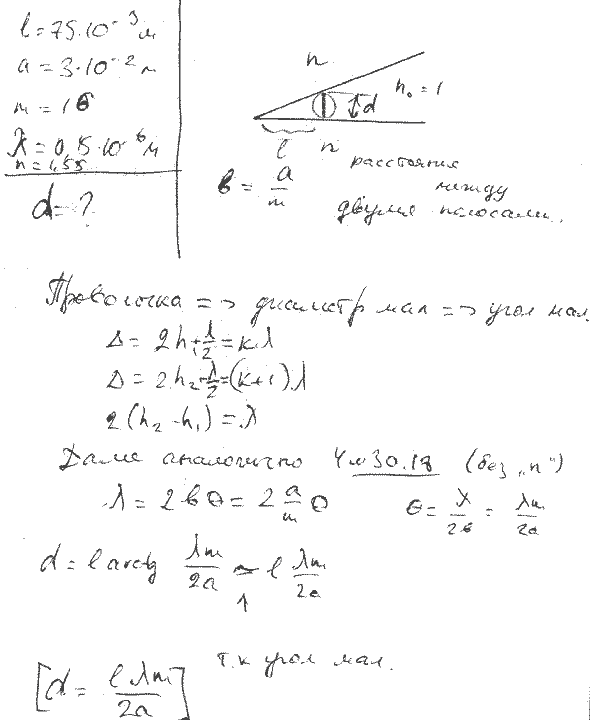 l = 75·10⁻³ м
a = 3·10⁻² м
m = 16
λ = 0,75·10⁻⁶ м
n = 1,55
d = ?
n
n₀ = 1
d
l
n
b = a/m
расстояния
между
двумя полосами.
Проволочка => диаметр мал => угол мал.
Δ = 2h₁ + λ/2 = kλ
Δ = 2h₂ + λ/2 = (k+1)λ
2(h₂ - h₁) = λ
Далее аналогично Ч м30.18 (без „n“)
λ = 2bθ = 2 a/m θ
θ = λ/2b = λm/2a
d = l arctg λm/2a ≃ l λm/2a
↑
т.к угол мал.
[d = lλm/2a]